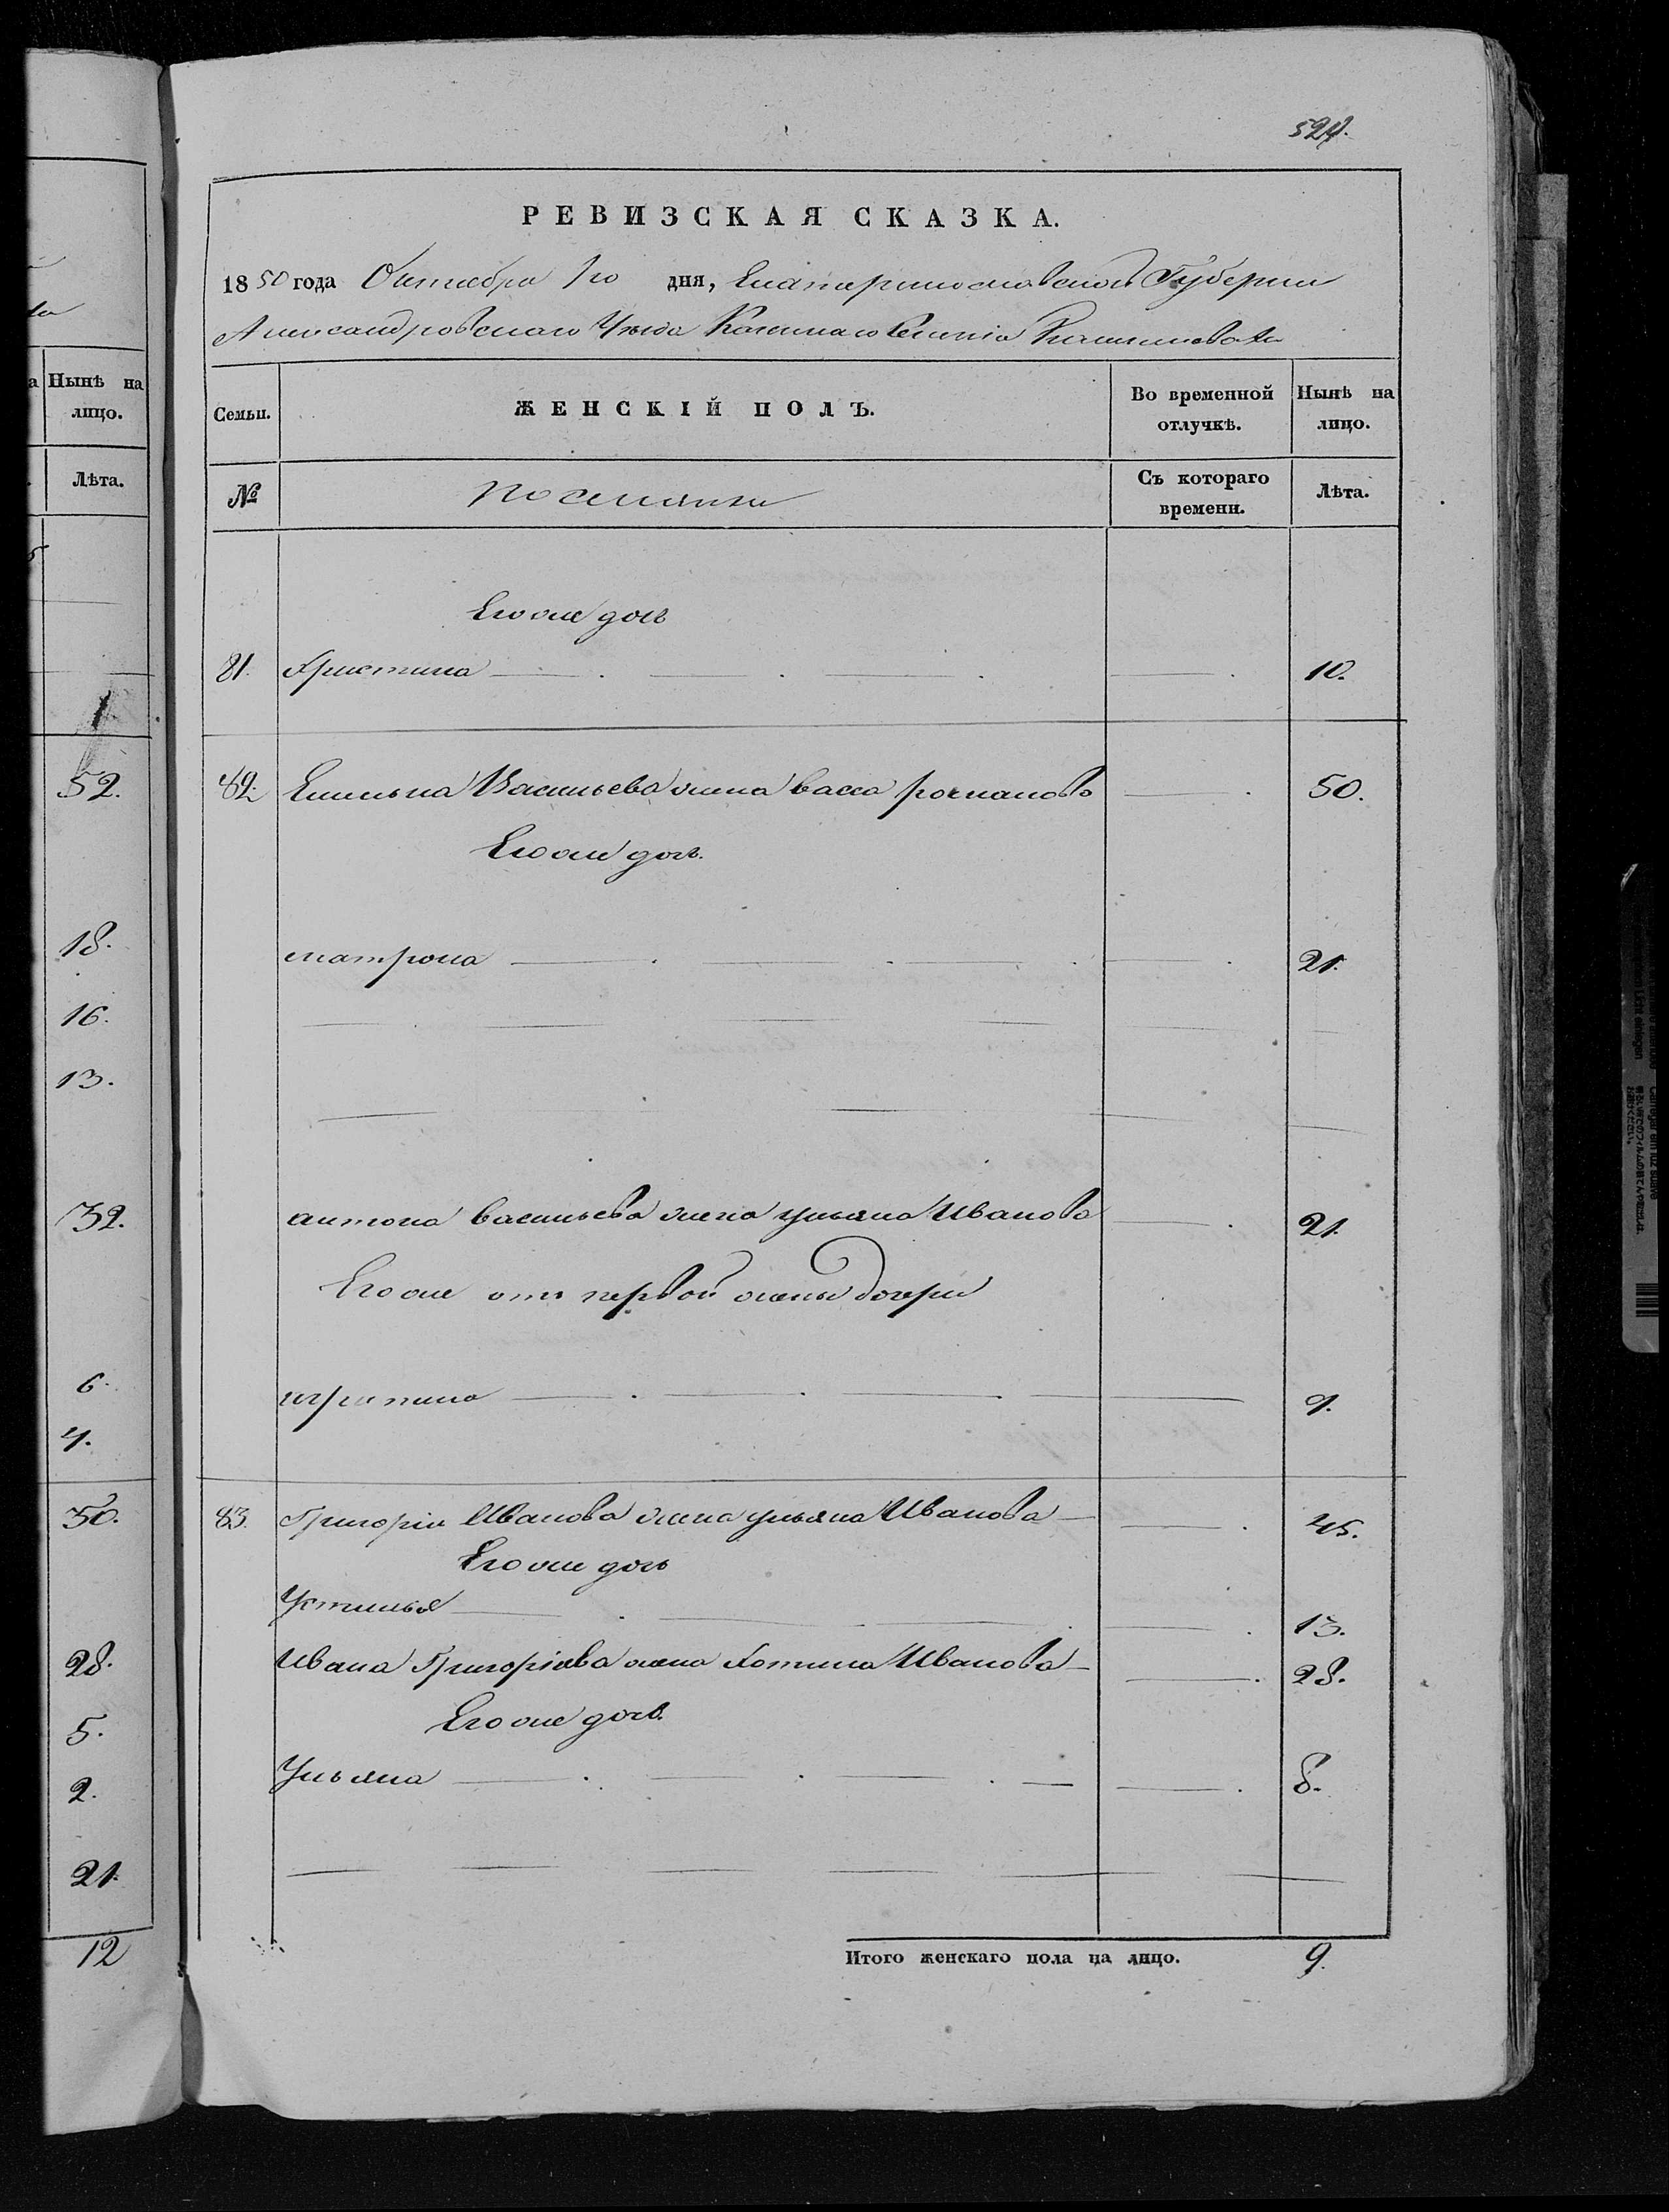 524.
РЕВИЗСКАЯ СКАЗКА.
1850 года Октября 1го дня, Екатеринославской Губернии
Александровскаго Уезда Казеннаго Селенія
Нынѣ на лицо.
Семьи.
ЖЕНСКІЙ ПОЛЪ.
Во временной отлучкѣ.
Нынѣ на лицо.
Лѣта.
№
Поселянки
Съ котораго времени.
Лѣта.
Его же дочь
81. Христина 10.
1
52.
82. Емельяна Васильева жена васса романова 50.
Его же дочь.
18.
матрона 21.
16.
13.
32.
антона васильева жена ульяна Иванова 21.
Его же отъ первой жены дочери
6.
агрипина 9.
4.
30.
83. Григорія Иванова жена ульяна Иванова 45.
Его же дочь
Устинья 13.
28.
Ивана Григоріева жена Хотина Иванова 28.
5.
Его же дочь.
2.
Ульяна 8.
21.
12
Итого женскаго пола на лицо. 9.